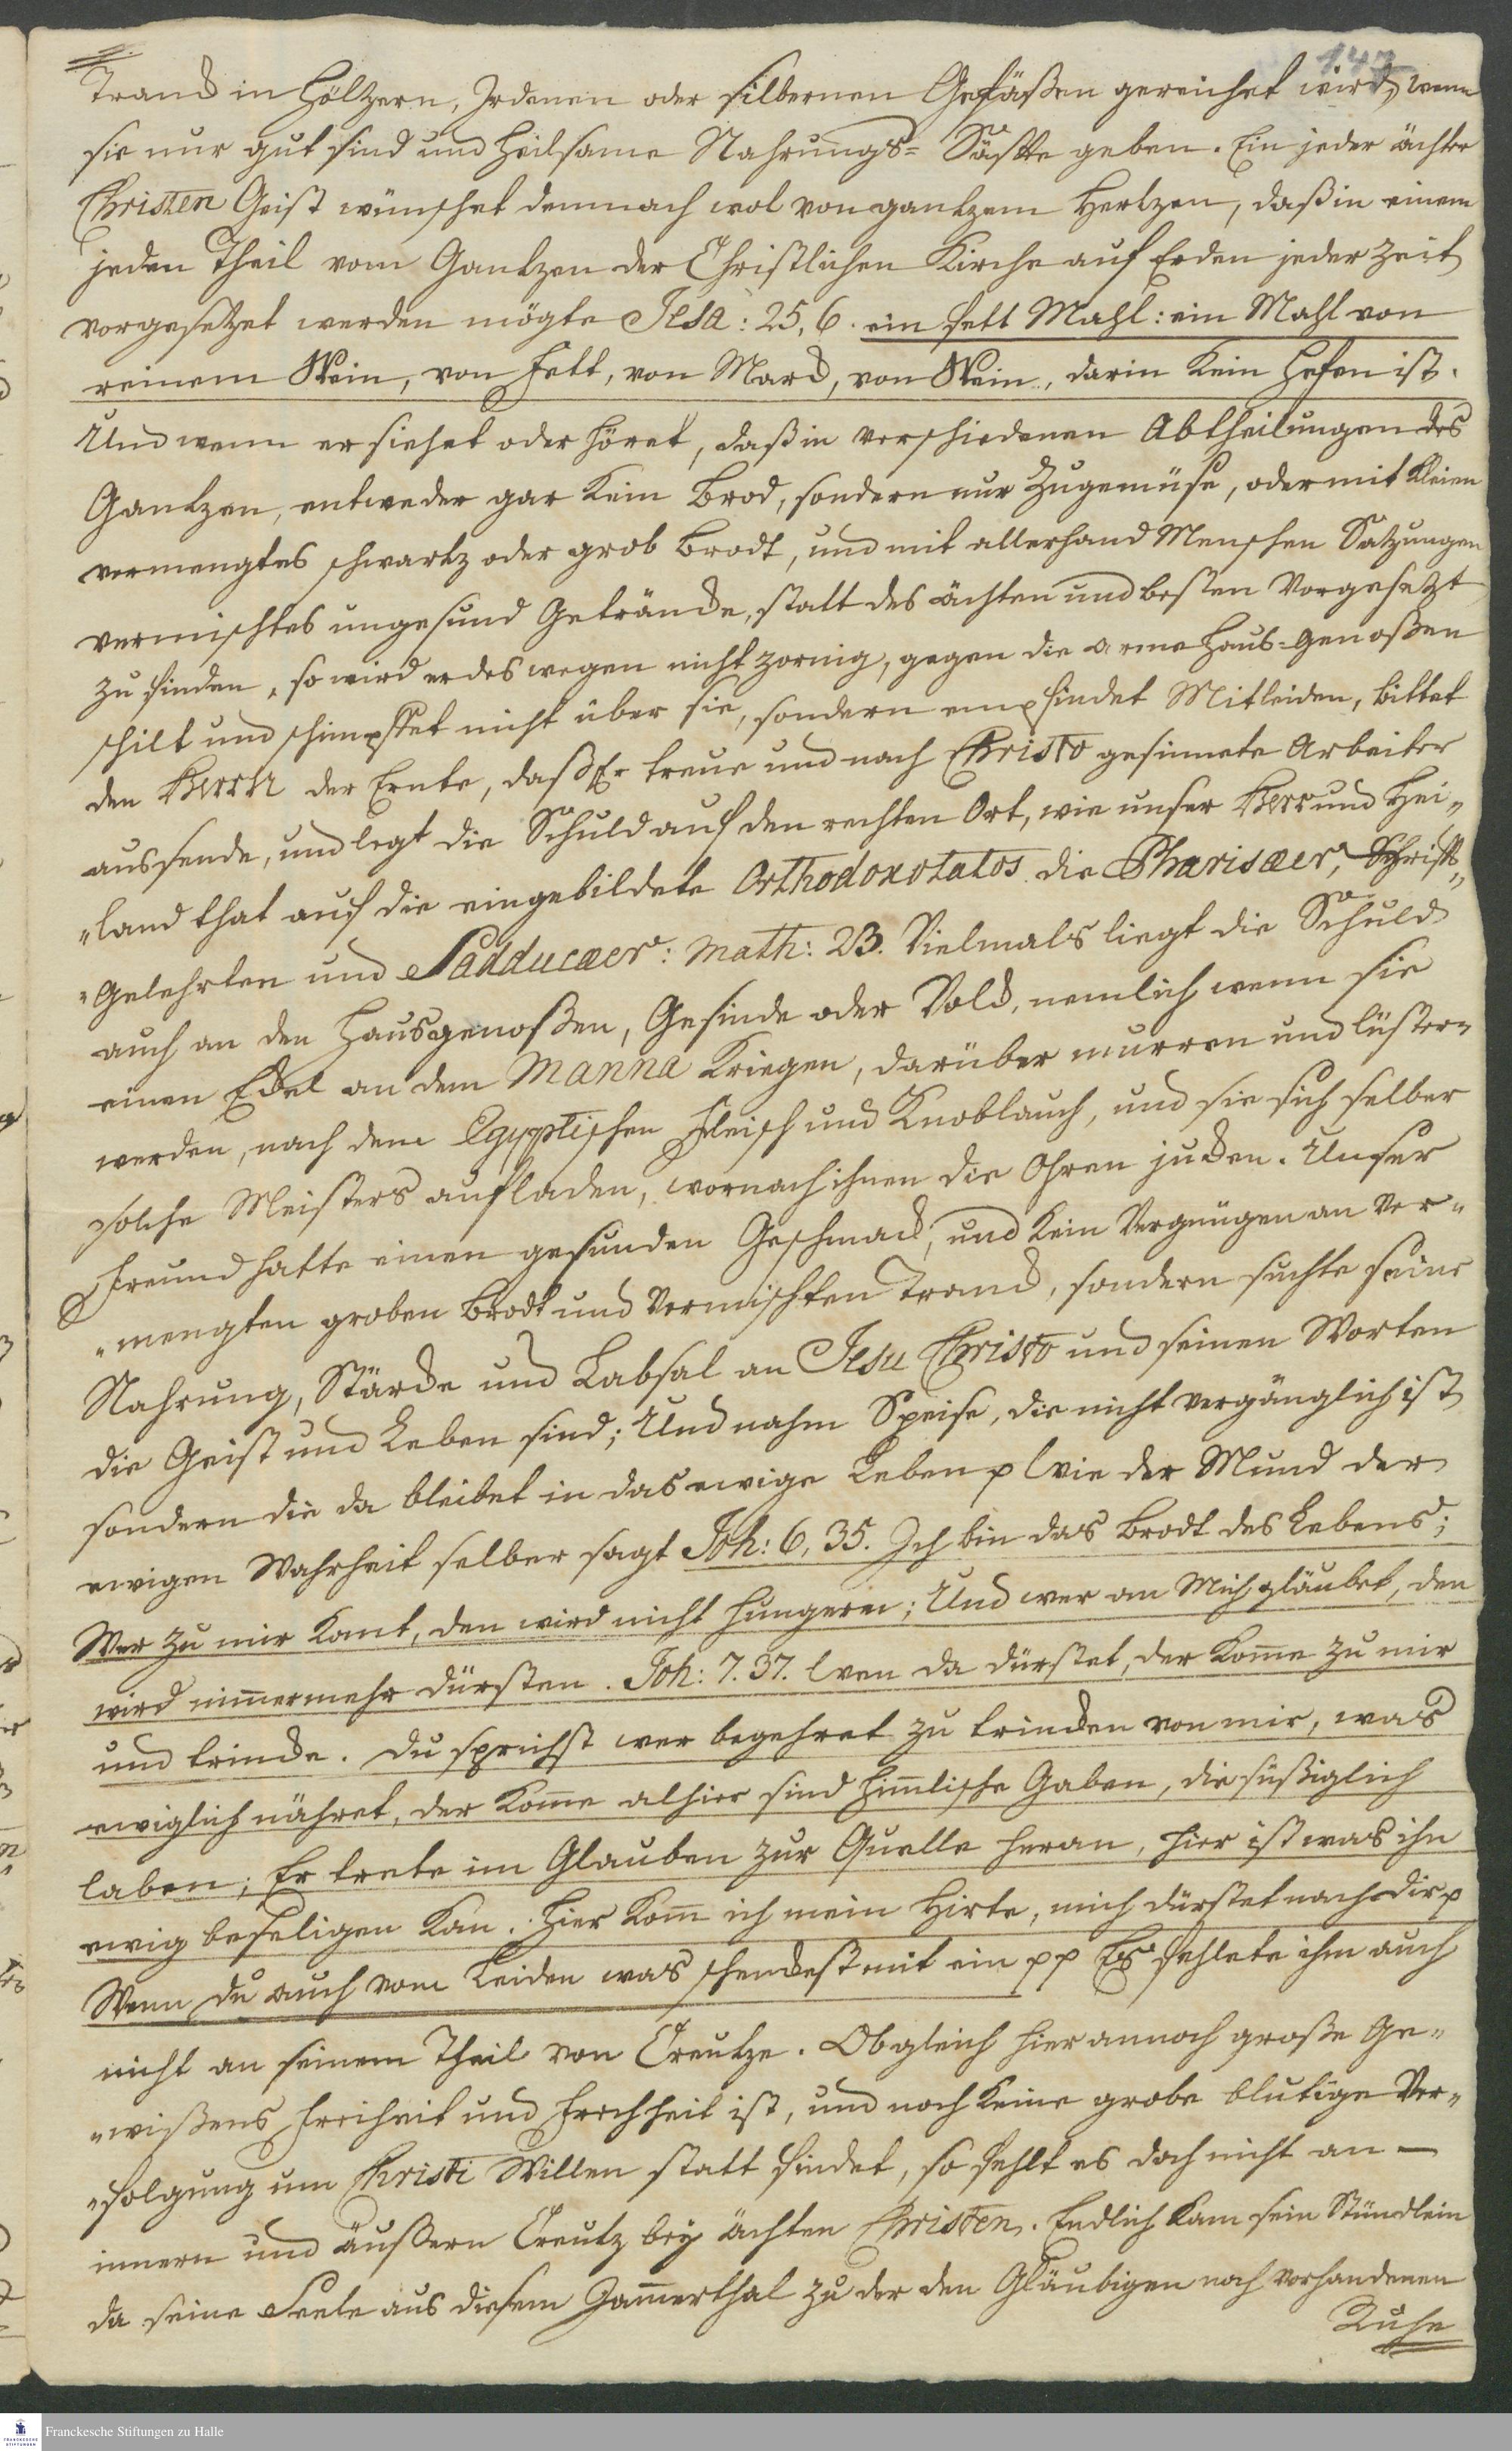 147
Tranck in Höltzern, Irdenen oder silbernen Gefäßen gereichet wird, wenn
sie nur gut sind und heilsame Nahrungs= Säffte geben. Ein jeder ächter
Christen Geist wünschet demnach wol von gantzem Hertzen, daß in einem
jeden Theil vom Gantzen der Christlichen Kirche auf Erden jeder Zeit
vorgesetzet werden mögte Jesa: 25, 6. ein fett Mahl: ein Mahl von
reinem Wein, von Fett, von Marck, von Wein, darin kein Hefen ist.
Und wenn er siehet oder höret, daß in verschiedenen Abtheilungen des
Gantzen, entweder gar kein Brod, sondern nur Zugemüse, oder mit Kleien
vermengtes schwartz oder grob Brodt, und mit allerhand Menschen Satzungen
vermischtes ungesund Geträncke, statt des ächten und besten vorgesetzt
zu finden, so wird er deswegen nicht zornig, gegen die arme Haus=Genoßen
schilt und schimpffet nicht über sie, sondern empfindet Mitleiden, bittet
den Herrn der Ernte, daß Er treue und nach Christo gesinnete Arbeiter
aussende, und legt die Schuld auf den rechten Ort, wie unser Herr und Hei„
„land that auf die eingebildete Orthodoxotatos die Pharisæer, Schrifft„
„Gelehrten und Sadducæer: Math: 23. Vielmals liegt die Schuld
auch an den Hausgenoßen, Gesinde oder Volck, nemlich wenn sie
einen Eckel an dem Manna kriegen, darüber murren und lüstern
werden, nach dem Egyptischen Fleisch und Knoblauch, und sie sich selber
solche Meisters aufladen, wornach ihnen die Ohren jucken. Unser
Freund hatte einen gesunden Geschmack, und kein Vergnügen an ver„
„mengten groben Brodt und vermischten Tranck, sondern suchte seine
Nahrung, Stärcke und Labsal an Jesu Christo und seinen Worten
die Geist und Leben sind; Und nahm Speise, die nicht vergänglich ist
sondern die da bleibet in das ewige Leben p Wie der Mund der
ewigen Wahrheit selber sagt Joh: 6, 35. Ich bin das Brodt des Lebens;
Wer zu mir komt, den wird nicht hungern; Und wer an Mich gläubet, den
wird nim̃ermehr dürsten. Joh: 7. 37. Wen da dürstet, der kom̃e zu mir
und trincke. Du sprichst wer begehret zu trincken von mir, was
ewiglich nähret, der kom̃e alhier sind him̃lische Gaben, die süßiglich
laben; Er trete im Glauben zur Quelle heran, hier ist was ihn
ewig beseligen kan. Hier kom̃ ich mein Hirte, mich dürstet nach dir p
Wenn du auch vom Leiden was schenckest mit ein pp Es fehlete ihm auch
nicht an seinem Theil von Creutze. Obgleich hier annoch große Ge„
„wißens Freiheit und Frechheit ist, und noch keine grobe blutige Ver„
„folgung um Christi Willen statt findet, so fehlt es doch nicht an —
innern und äußern Creutz bey ächten Christen. Endlich kam sein Stündlein
da seine Seele aus diesem Jam̃erthal zu der den Gläubigen noch vorhandenen
Ruhe
Franckesche Stiftungen zu Halle